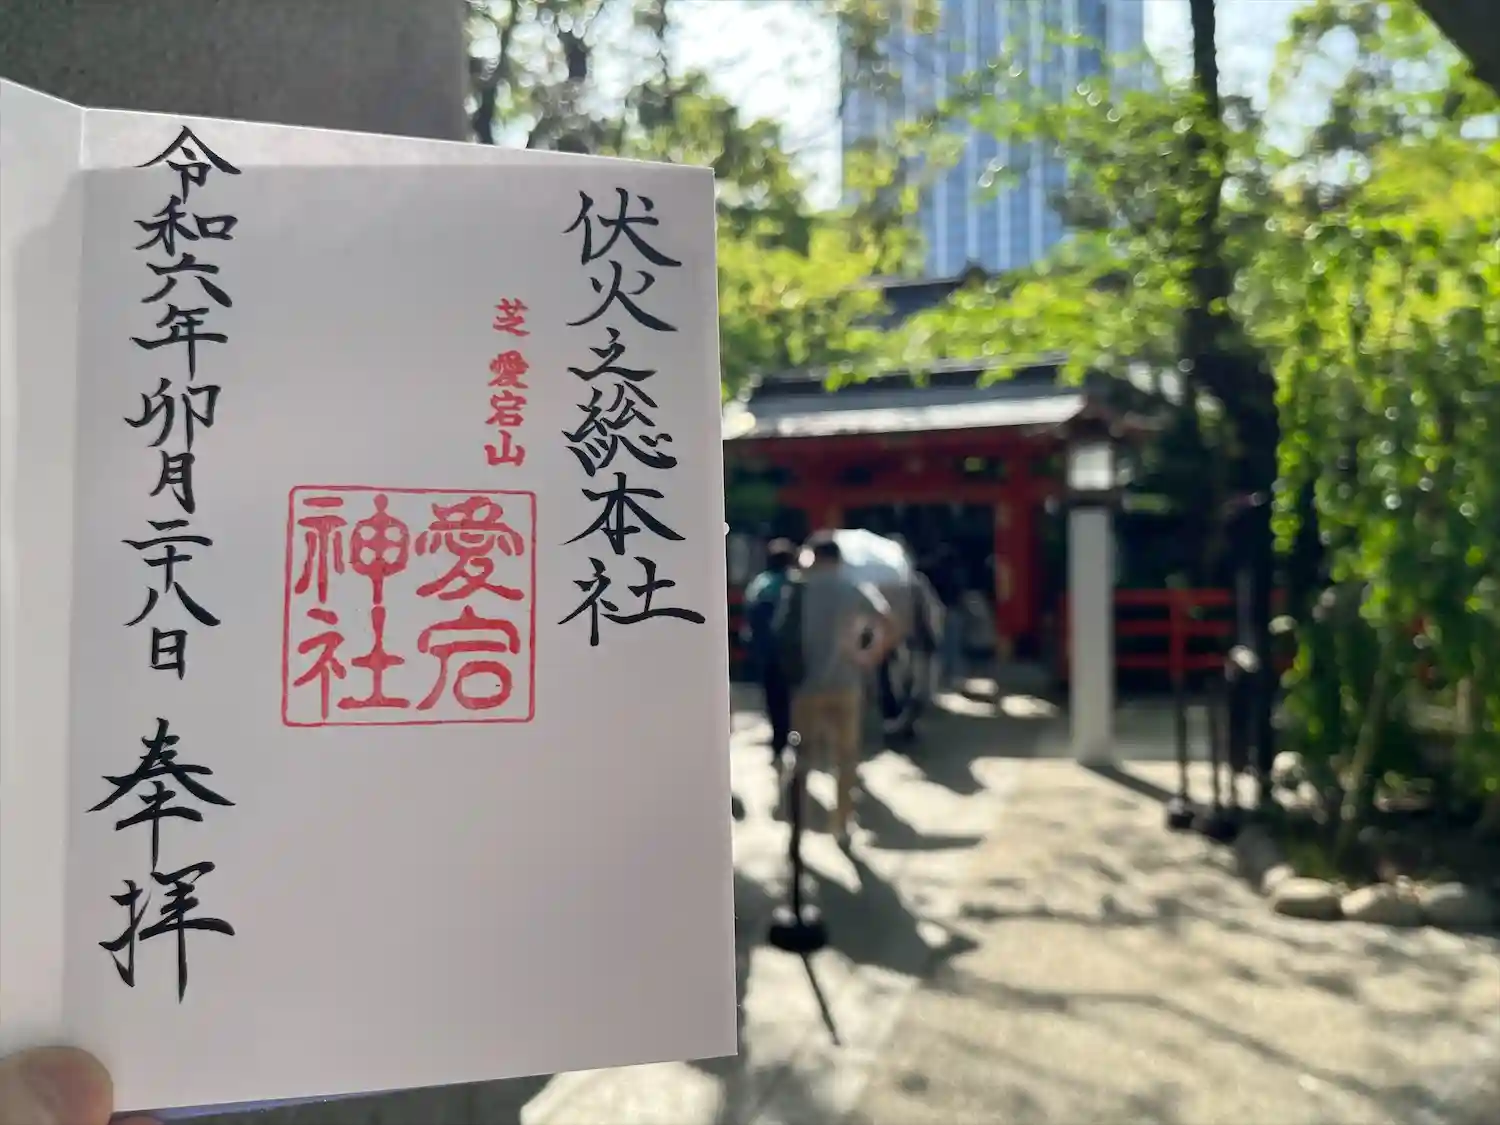 伏火之総本社
芝 愛宕山
愛宕
神社
令和六年 卯月二十八日 奉拝